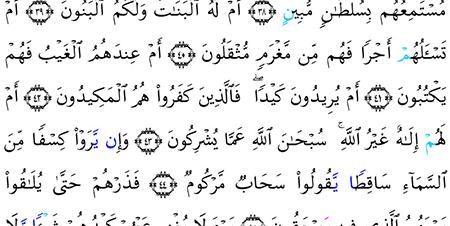 مُسْتَمِعُهُم بِسُلْطَـٰنٍ مُّبِينٍ ﴿٣٨﴾ أَمْ لَهُ الْبَنَـٰتُ وَلَكُمُ الْبَنُونَ ﴿٣٩﴾ أَمْ
تَسْـَٔلُهُمْ أَجْرًا فَهُم مِّن مَّغْرَمٍ مُّثْقَلُونَ ﴿٤٠﴾ أَمْ عِندَهُمُ الْغَيْبُ فَهُمْ
يَكْتُبُونَ ﴿٤١﴾ أَمْ يُرِيدُونَ كَيْدًا ۖ فَالَّذِينَ كَفَرُوا۟ هُمُ الْمَكِيدُونَ ﴿٤٢﴾ أَمْ
لَهُمْ إِلَـٰهٌ غَيْرُ اللَّهِ ۚ سُبْحَـٰنَ اللَّهِ عَمَّا يُشْرِكُونَ ﴿٤٣﴾ وَإِن يَرَوْا۟ كِسْفًا مِّنَ
السَّمَآءِ سَاقِطًا يَقُولُوا۟ سَحَابٌ مَّرْكُومٌ ﴿٤٤﴾ فَذَرْهُمْ حَتَّىٰ يُلَـٰقُوا۟